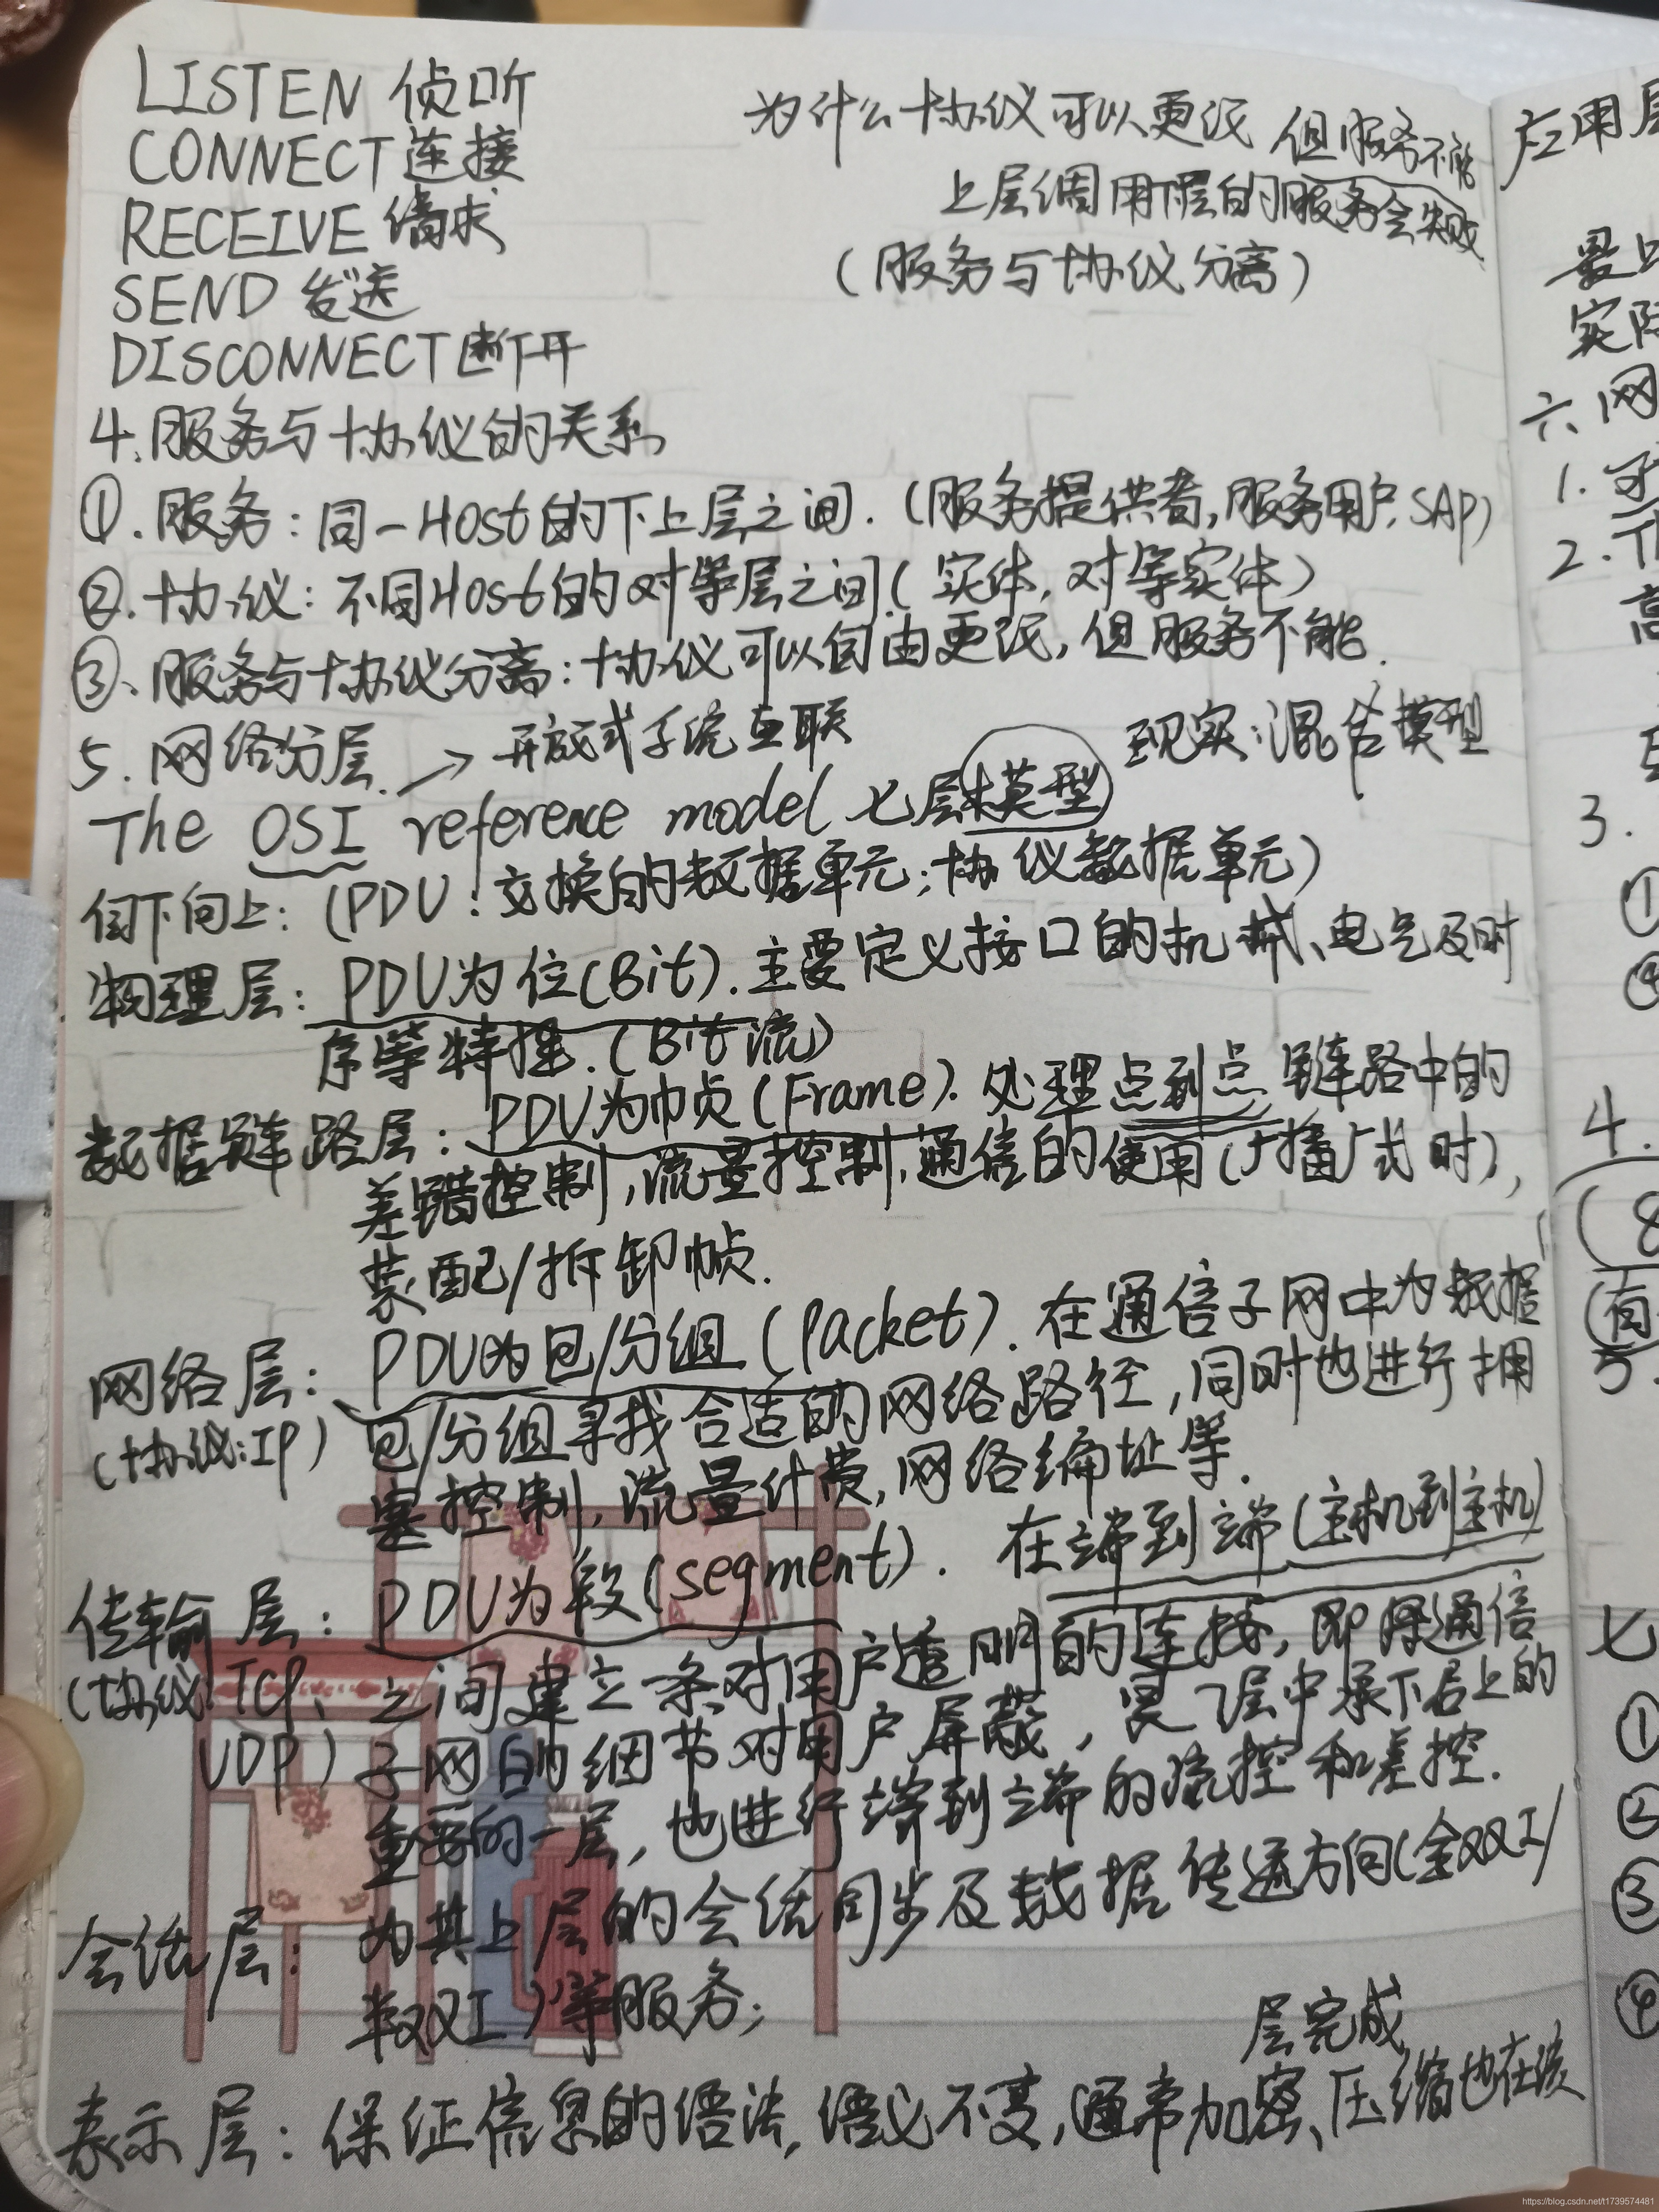 LISTEN 侦听
CONNECT 连接
RECEIVE 请求
SEND 发送
DISCONNECT 断开
为什么协议可以更改 但服务不能
上层调用下层的服务会失败
(服务与协议分离)
4.服务与协议的关系
①.服务:同一Host的下上层之间.(服务提供者,服务用户,SAP)
②.协议:不同Host的对等层之间(实体,对等实体)
③、服务与协议分离:协议可以自由更改,但服务不能.
5.网络分层. → 开放式系统互联
现实:混合模型
The OSI reference model 七层模型
自下向上:(PDU:交换的数据单元;协议数据单元)
物理层:PDU为位(Bit).主要定义接口的机械、电气及时
序等特性.(Bit流)
数据链路层:PDU为帧(Frame).处理点到点链路中的
差错控制,流量控制,通信的使用(广播式时),
装配/拆卸帧.
网络层:PDU为包/分组(Packet).在通信子网中为数据
(协议:IP)包/分组寻找合适的网络路径,同时也进行拥
塞控制,流量计费,网络编址等.
传输层:PDU为段(segment).在端到端(主机到主机)
(协议:TCP、之间建立一条对用户透明的连接,即将通信
UDP)子网的细节对用户屏蔽,是7层中承下启上的
重要的一层,也进行端到端的流控和差控.
会话层:为其上层的会话同步及数据传送方向(全双工/
半双工)等服务;
层完成
表示层:保证信息的语法,语义不变,通常加密、压缩也在该
应用层
实际
六、网
1.
2.
3.
①
4.
(8
5.
七
①
②
③
④
https://blog.csdn.net/t1739574481